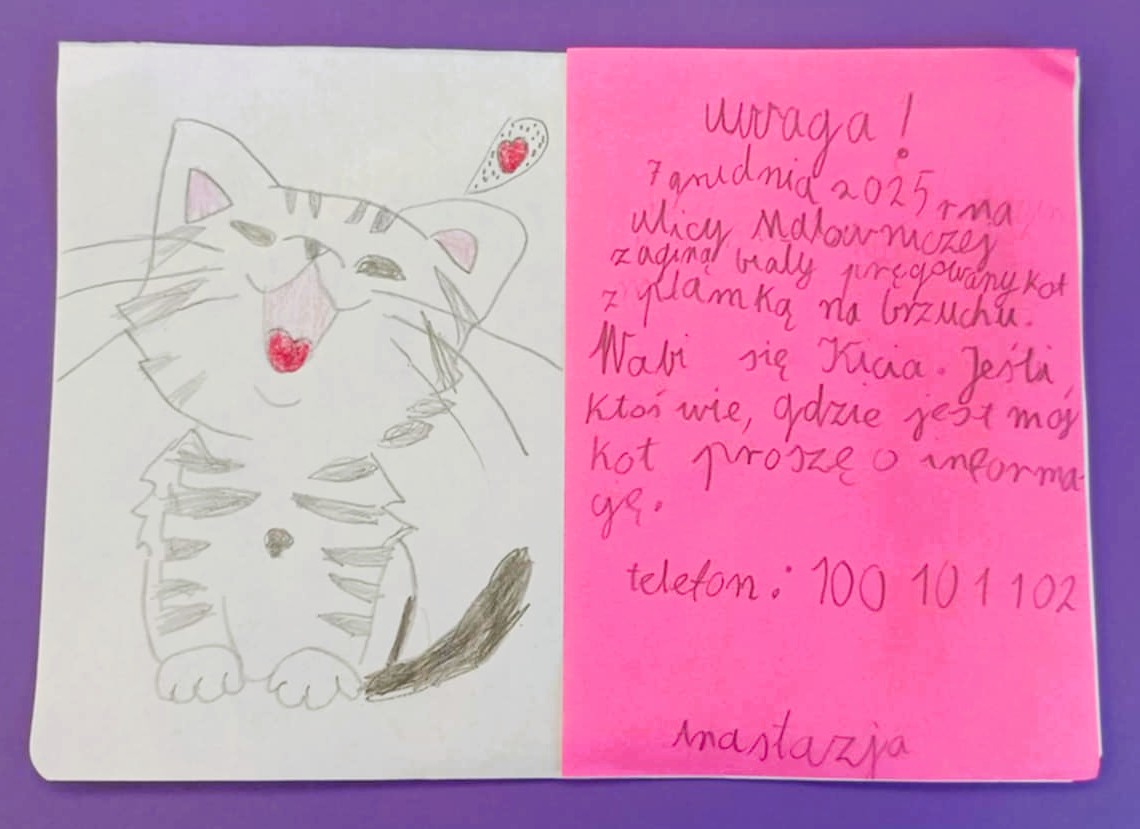 uwaga!
7 grudnia 2025 r na
ulicy Malowniczej
zaginął biały pręgowany kot
z plamką na brzuchu.
Wabi się Kicia. Jeśli
ktoś wie, gdzie jest mój
kot proszę o informa-
gę.
telefon: 100 101 102
Anastazja